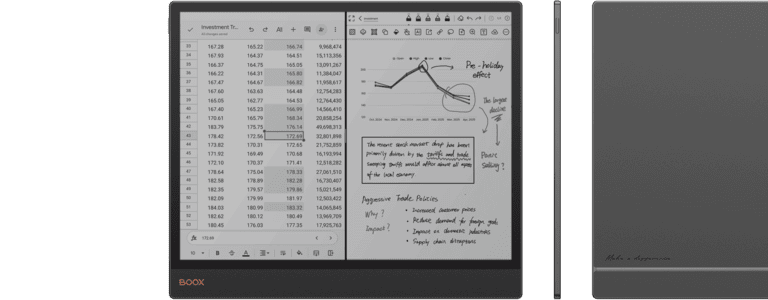 Investment Tr...
33 167.28 165.22 166.74 9,968,474
34 167.93 164.37 164.51 15,113,356
35 166.37 164.75 165.05 13,091,267
36 166.22 164.31 165.80 11,384,047
37 167.47 164.67 166.82 11,958,617
38 167.60 163.63 164.48 12,754,283
39 165.05 162.77 164.53 12,764,450
40 167.40 165.23 166.99 14,566,410
41 170.61 165.79 168.34 20,858,254
42 183.79 175.75 176.14 49,698,313
43 178.42 172.56 172.69 32,801,898
44 173.82 170.31 172.65 21,752,859
45 171.92 169.49 170.68 16,193,994
46 172.10 170.37 171.41 12,518,282
47 178.64 175.04 178.33 27,061,510
48 182.58 178.89 182.28 16,730,407
49 182.35 179.57 179.86 15,021,549
50 182.09 179.99 181.97 12,503,422
51 184.03 180.99 183.32 14,065,845
52 182.62 180.12 180.49 13,969,709
53 180.45 176.03 177.35 17,925,763
fx 172.69
10 B
BOOX
Pre-holiday
effect
The largest
decline
Panic
selling?
The recent stock market drop has been
primarily driven by the tariffs and trade
sweeping tariffs would affect almost all
of the local economy.
Aggressive Trade Policies
Why?
Impact?
• Increased customer prices
• Reduce demand for foreign goods
• Impact on domestic industries
• Supply chain disruptions
Make a difference